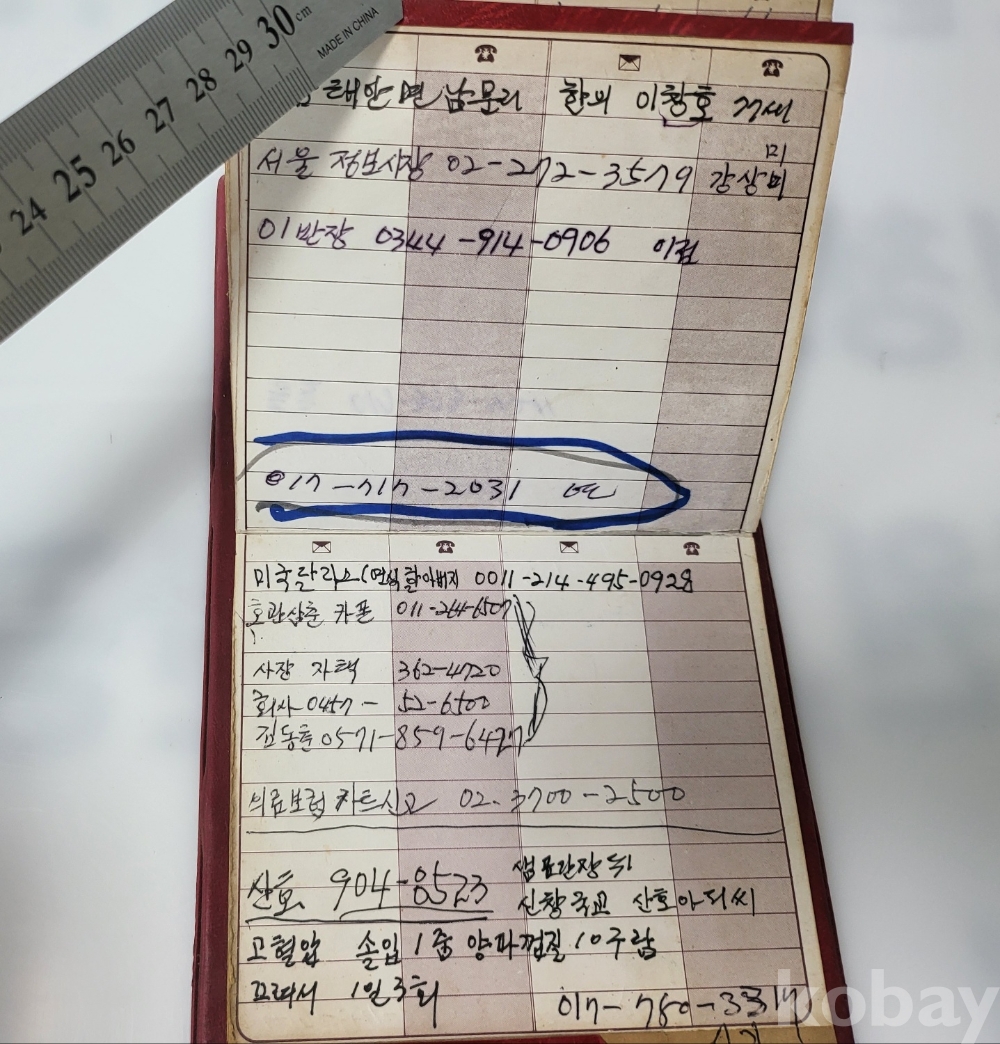 24 25 26 27 28 29 30 cm
MADE IN CHINA
태안면 남문리 한의 이창호
미
서울 정보사장 02-272-3579 강상미
이반장 0344-914-0906
017-717-2031
미국달라스(면싱할아버지 0011-214-495-0928
호관삼춘 카폰 011-264-6507
사장 자택 362-4720
회사 0457-52-6500
전동훈 0571-859-6427
의료보험카트신고 02-3700-2500
산호 904-8523
샘표간장 뒤
신창국교 산호아파씨
고혈압 솔입 1줌 양파껍질 10구람
끄려서 1일3회
017-780-3317
kobay